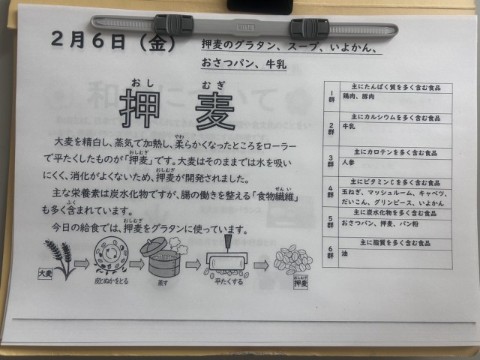 2月6日（金）
押麦のグラタン、スープ、いよかん、
おさつパン、牛乳
おし むぎ
押麦
大麦を精白し、蒸気で加熱し、柔らかくなったところをローラー
で平たくしたものが「押麦」です。大麦はそのままでは水を吸い
にくく、消化がよくないため、押麦が開発されました。
主な栄養素は炭水化物ですが、腸の働きを整える「食物繊維」
も多く含まれています。
今日の給食では、押麦をグラタンに使っています。
大麦
蒸す
平たくする
押麦
1群
主にたんぱく質を多く含む食品
鶏肉、豚肉
2群
主にカルシウムを多く含む食品
牛乳
3群
主にカロテンを多く含む食品
人参
4群
主にビタミンCを多く含む食品
玉ねぎ、マッシュルーム、キャベツ、
だいこん、グリンピース、いよかん
5群
主に炭水化物を多く含む食品
おさつパン、押麦、パン粉
6群
主に脂質を多く含む食品
油